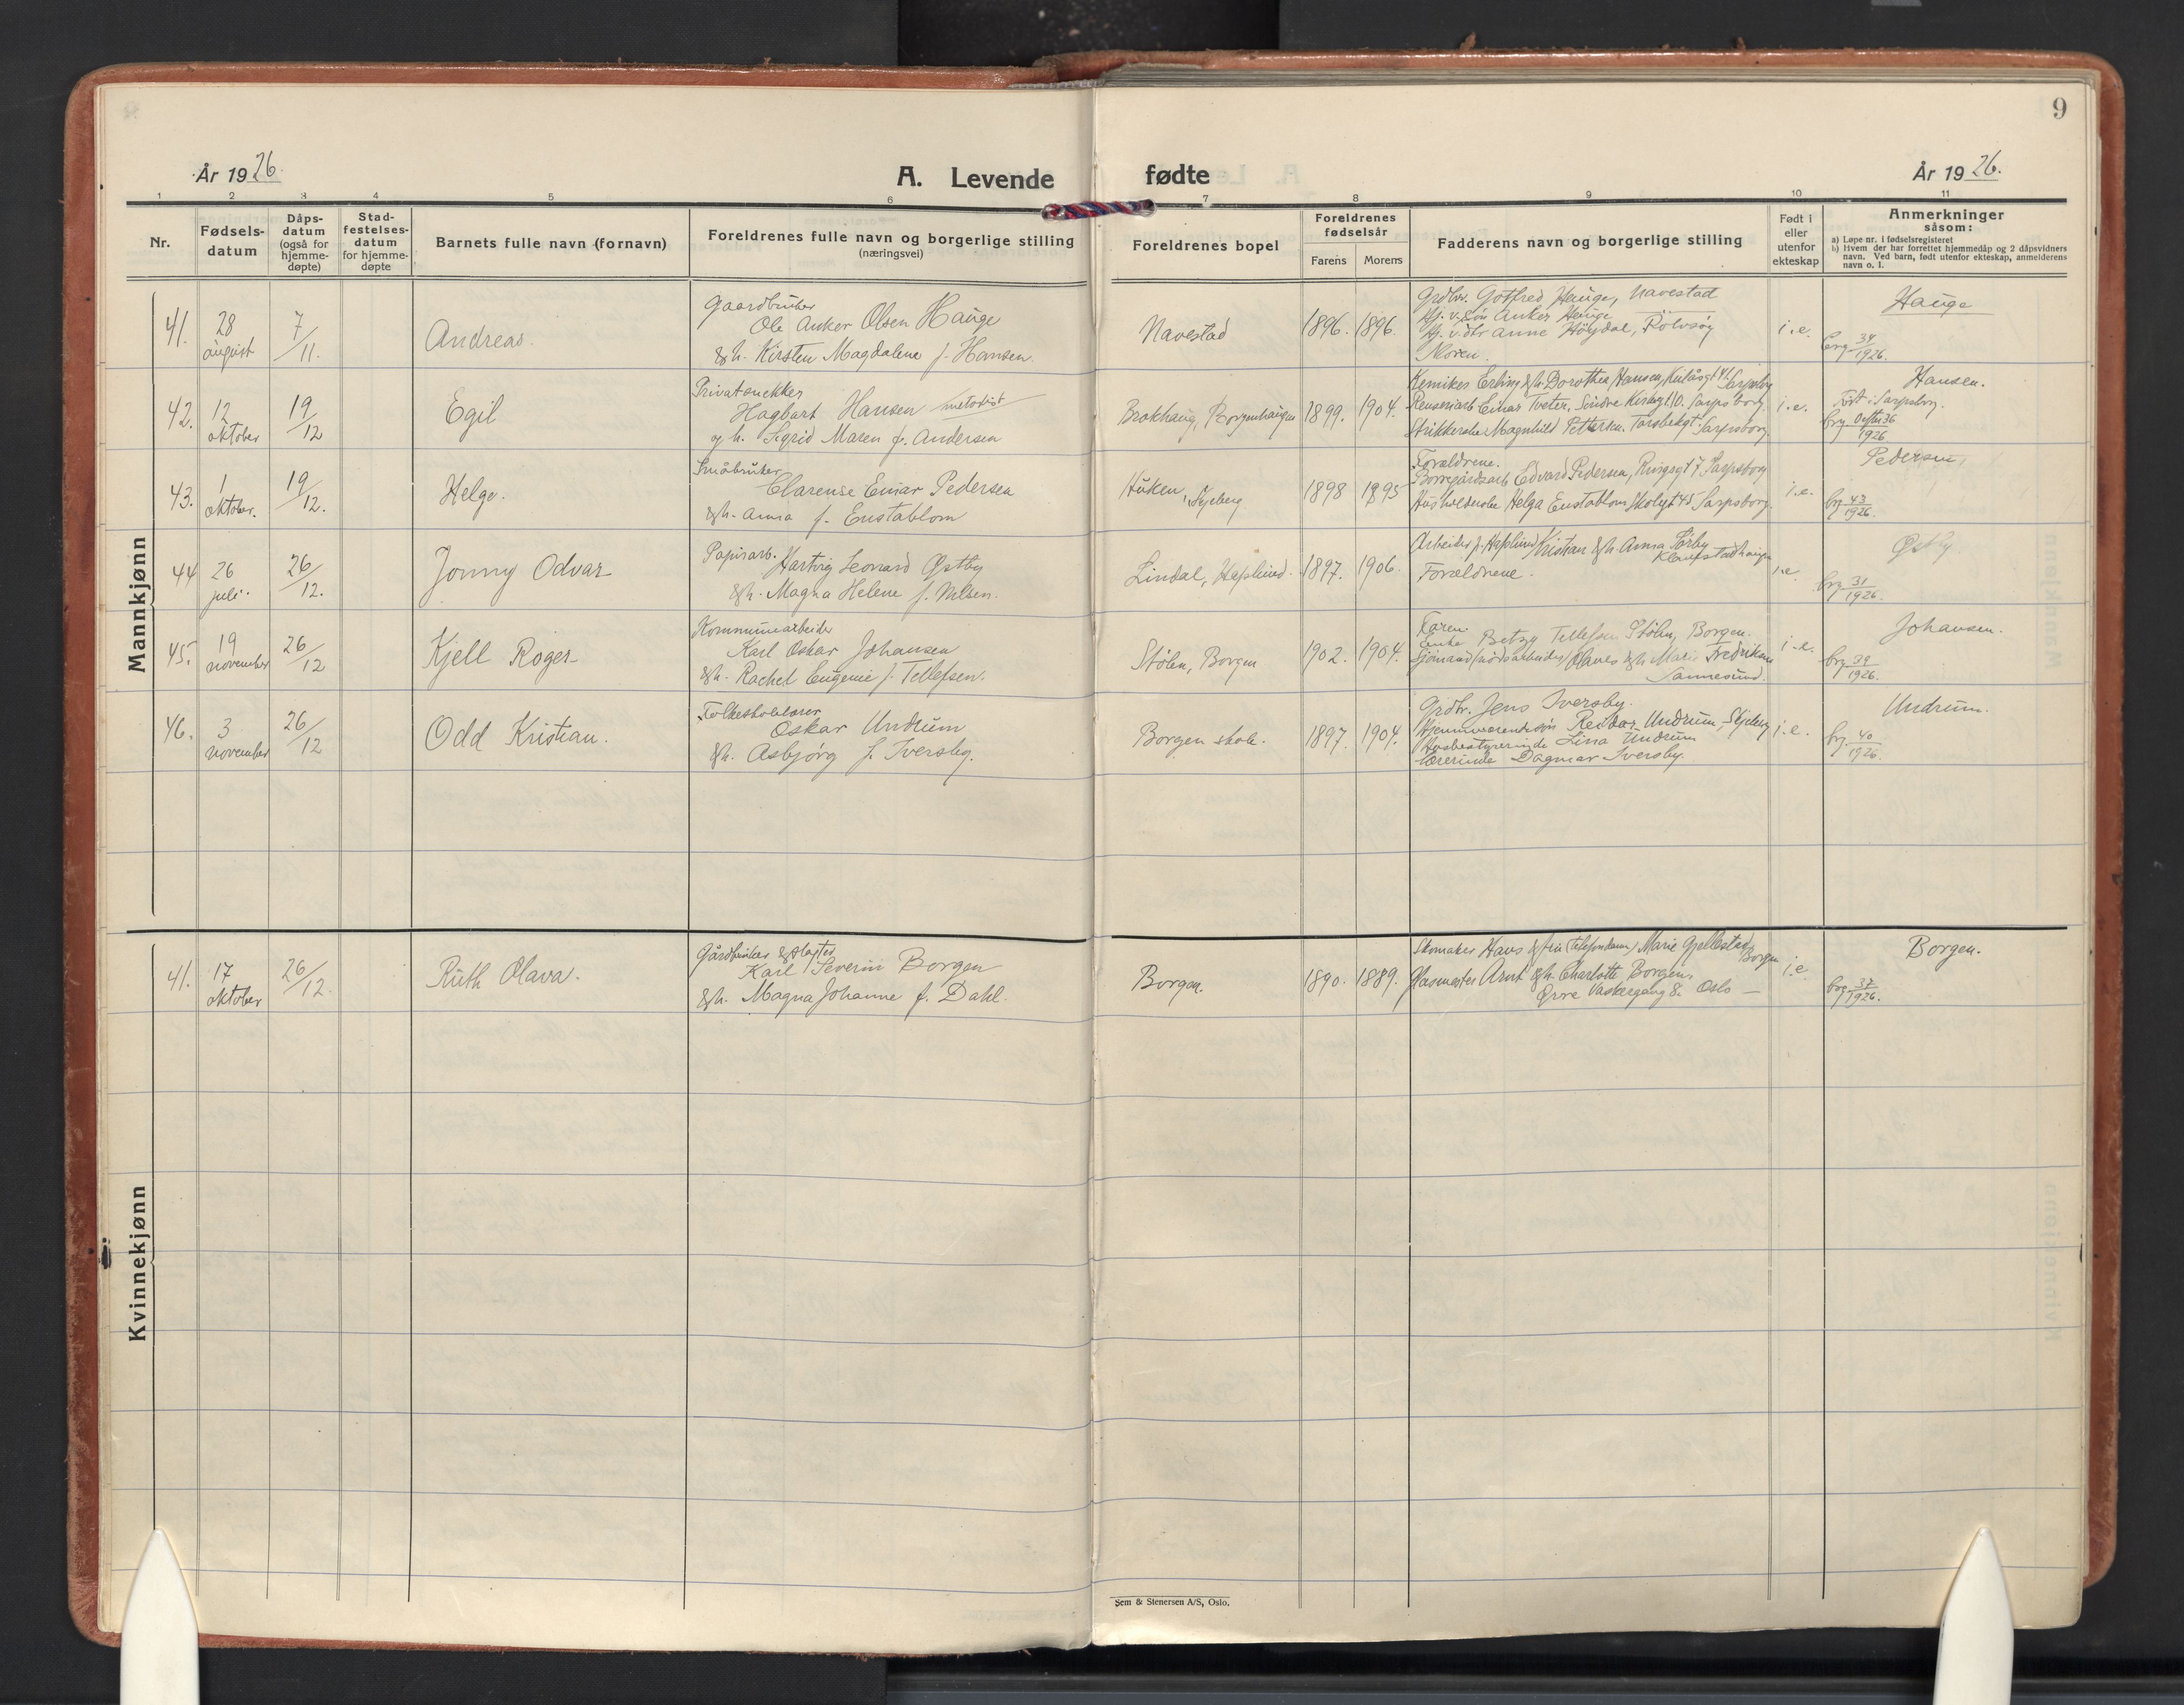 9
År 1926.
A. Levende fødte
År 1926.
1 2 3 4 5 6 7 8 9 10 11
Nr.
Fødsels-
datum
Dåps-
datum
(også for
hjemme-
døpte)
Stad-
festelses-
datum
for hjemme-
døpte
Barnets fulle navn (fornavn)
Foreldrenes fulle navn og borgerlige stilling
(næringsvei)
Foreldrenes bopel
Foreldrenes
fødselsår
Farens
Morens
Fadderens navn og borgerlige stilling
Født i
eller
utenfor
ekteskap
Anmerkninger
såsom:
a) Løpe nr. i fødselsregisteret
b) Hvem der har forrettet hjemmedåp og 2 dåpsvidners
navn. Ved barn, født utenfor ekteskap, anmelderens
navn o. l.
Mannkjønn
41.
28
august
7/11.
Andreas.
Gaardbruker
Ole Anker Olsen Hauge
& h. Kirsten Magdalene f. Hansen.
Navestad
1896.
1896.
Grdbr. Gotfred Hauge, Navestad
Hj. v. søn Anker Hauge
Hj. v. dtr Anne Høgdal, Rolvsøy
Moren.
i.e.
Hauge
brg 34/1926.
42.
12
oktober
19/12
Egil
Privatsnekker
Hagbart Hansen metodist
og h. Sigrid Maren f. Andersen
Brokhaug, Borgenhaugen
1899.
1904.
Kemiker Erling & h. Dorothea Hansen, Sarpsborg
Einar Tveter, Sarpsborg
Magnhild Pettersen. Sarpsborg.
i.e.
Hansen.
Født i Sarpsborg.
brg 36/1926
43.
1
oktober.
19/12.
Helge.
Småbruker
Clarense Einar Pedersen
& h. Anna f. Enstablom
Huken, Skjeberg
1898
1895
Forældrene.
Borregårdsarb. Edvard Pedersen, Ringsgt 7 Sarpsborg
Helga Enstablom Skolegt 45 Sarpsborg.
i.e.
Pedersen,
brg 43/1926.
44
26
juli.
26/12.
Jonny Odvar
Papirarb. Hartvig Leonard Østby
& h. Magna Helene f. Nilsen.
Lindal, Hafslund.
1897.
1906.
Arbeider p. Hafslund Kristian & h. Anna Sørby
Klavestadhaugen
Forældrene.
i.e.
Østby
brg 31/1926.
45.
19
november
26/12
Kjell Roger
Kommunearbeider
Karl Oskar Johansen
& h. Rachel Eugenie f. Tellefsen.
Stølen, Borgen
1902.
1904.
Faren.
Enke Betzy Tellefsen Stølen, Borgen.
Sjømand Olaves & h. Marie Fredriksen
Sannesund.
i.e.
Johansen.
brg 39/1926.
46.
3
november
26/12
Odd Kristian.
Folkeskolelærer
Oskar Undrum
& h. Asbjørg f. Iversby.
Borgen skole.
1897.
1904.
Grdbr. Jens Iversby.
Hjemmeværende søn Reidar Undrum, Skjeberg
Husbestyrerinde Lina Undrum
Lærerinde Dagmar Iversby.
i.e.
Undrum.
brg. 40/1926.
Kvinnekjønn
41.
17
oktober
26/12.
Ruth Olava.
Gårdbruker & slagter
Karl Severin Borgen
& h. Magna Johanne f. Dahl.
Borgen.
1890.
1889.
Skomaker Hans & fru (telefondame) Marie Gjellestad, Borgen
Glasmester Arnt & h. Charlotte Borgen,
Øvre Vaskergang 8. Oslo —
i.e.
Borgen.
brg 37/1926.
Sem & Stenersen A/S, Oslo.